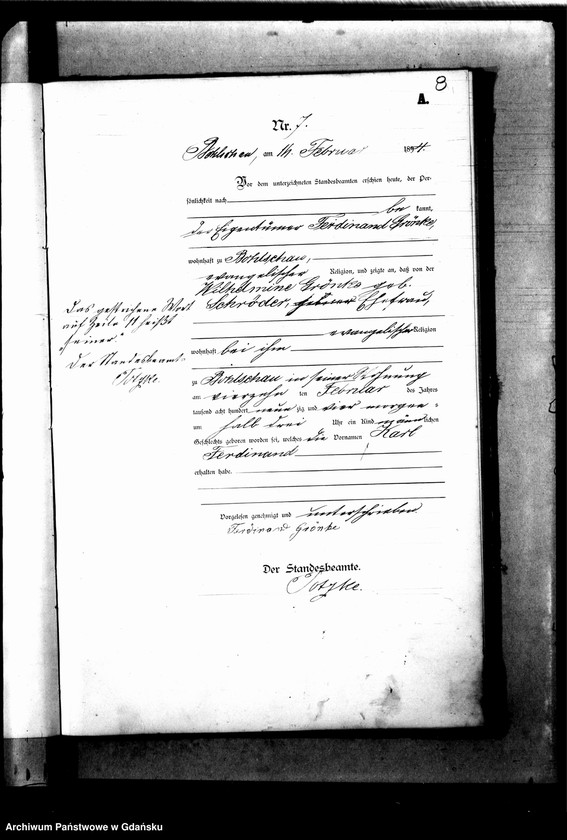 8
A.
Nr. 7.
Bohlschau, am 14. Februar 1894.
Vor dem unterzeichneten Standesbeamten erschien heute, der Per-
sönlichkeit nach
be kannt,
der Eigentümer Ferdinand Grönke,
wohnhaft zu Bohlschau,
evangelischer Religion, und zeigte an, daß von der
Wilhelmine Grönke geb.
Schröder, seiner Ehefrau,
evangelischer Religion
wohnhaft bei ihm
zu Bohlschau in seiner Wohnung
am vierzehn ten Februar des Jahres
tausend acht hundert neun zig und vier morgens
um halb drei Uhr ein Kind männlichen
Geschlechts geboren worden sei, welches die Vornamen Karl
Ferdinand
erhalten habe.
Das gestrichene Wort
auf Zeile 11 heißt
"seiner".
Der Standesbeamte
Potzke.
Vorgelesen genehmigt und unterschrieben
Ferdinand Grönke
Der Standesbeamte.
Potzke.
Archiwum Państwowe w Gdańsku